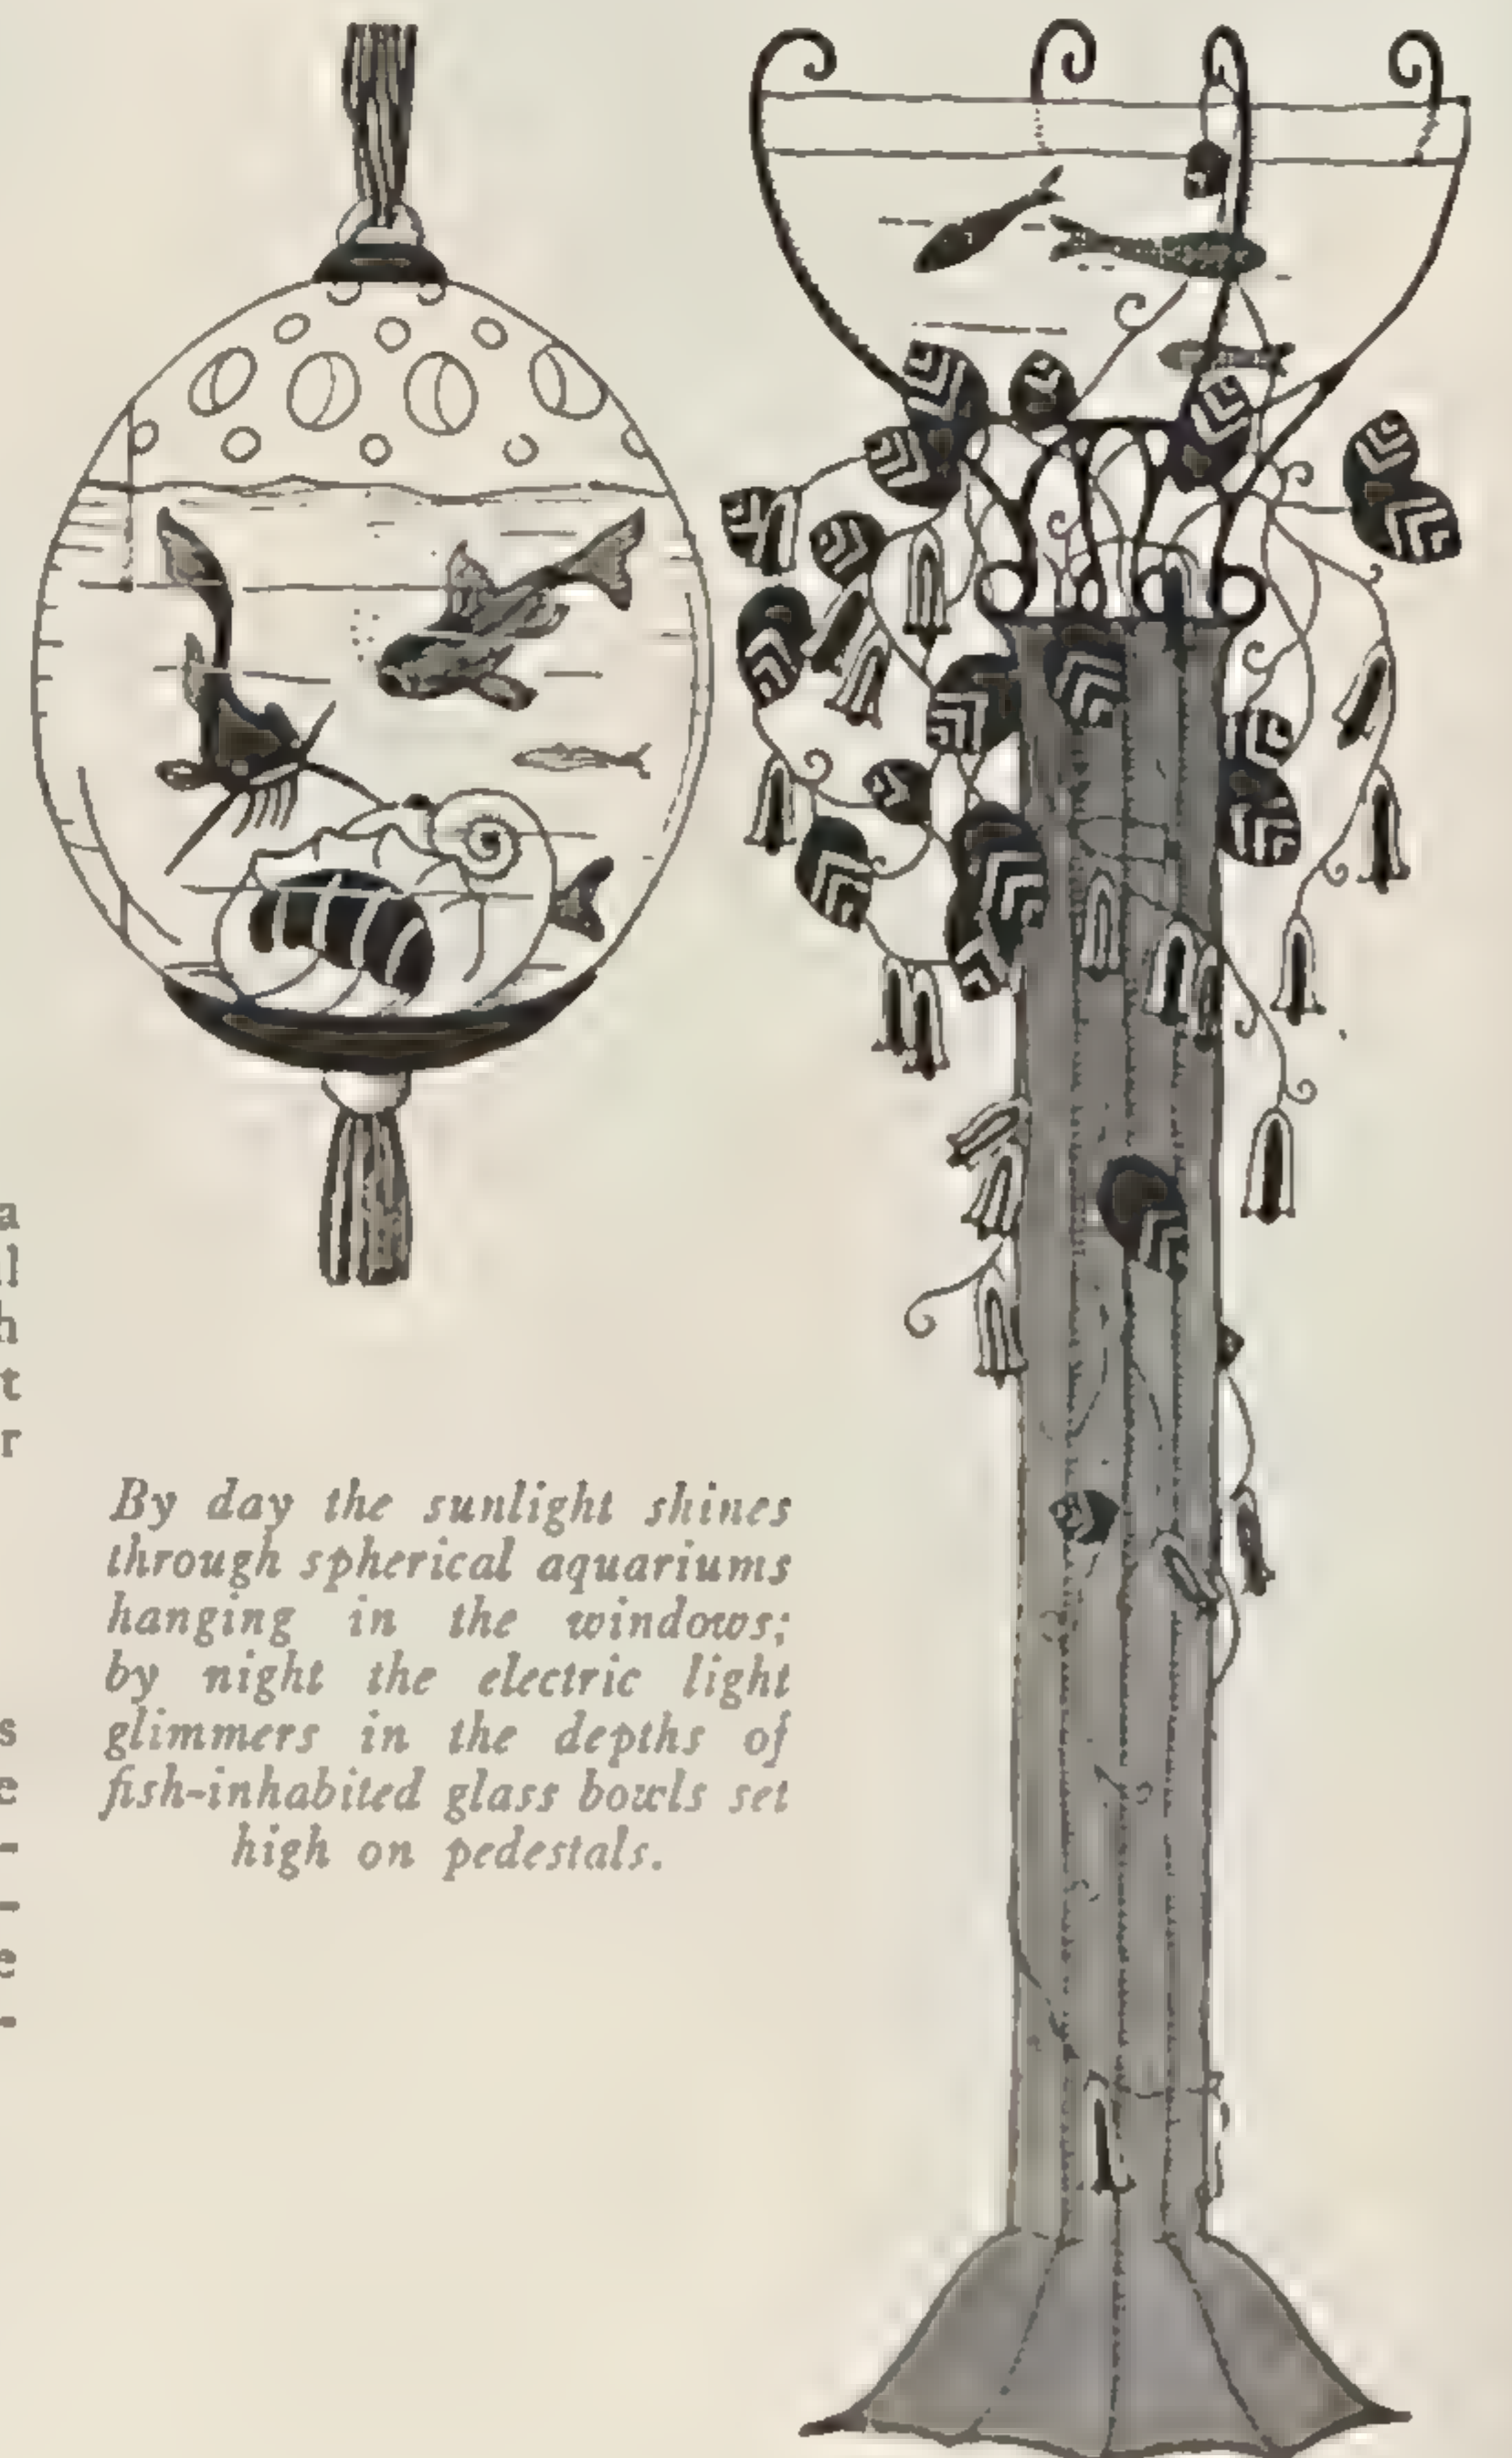 a
l
h
t
r
By day the sunlight shines
through spherical aquariums
hanging in the windows;
by night the electric light
glimmers in the depths of
fish-inhabited glass bowls set
high on pedestals.
s
e
-
-
e
-